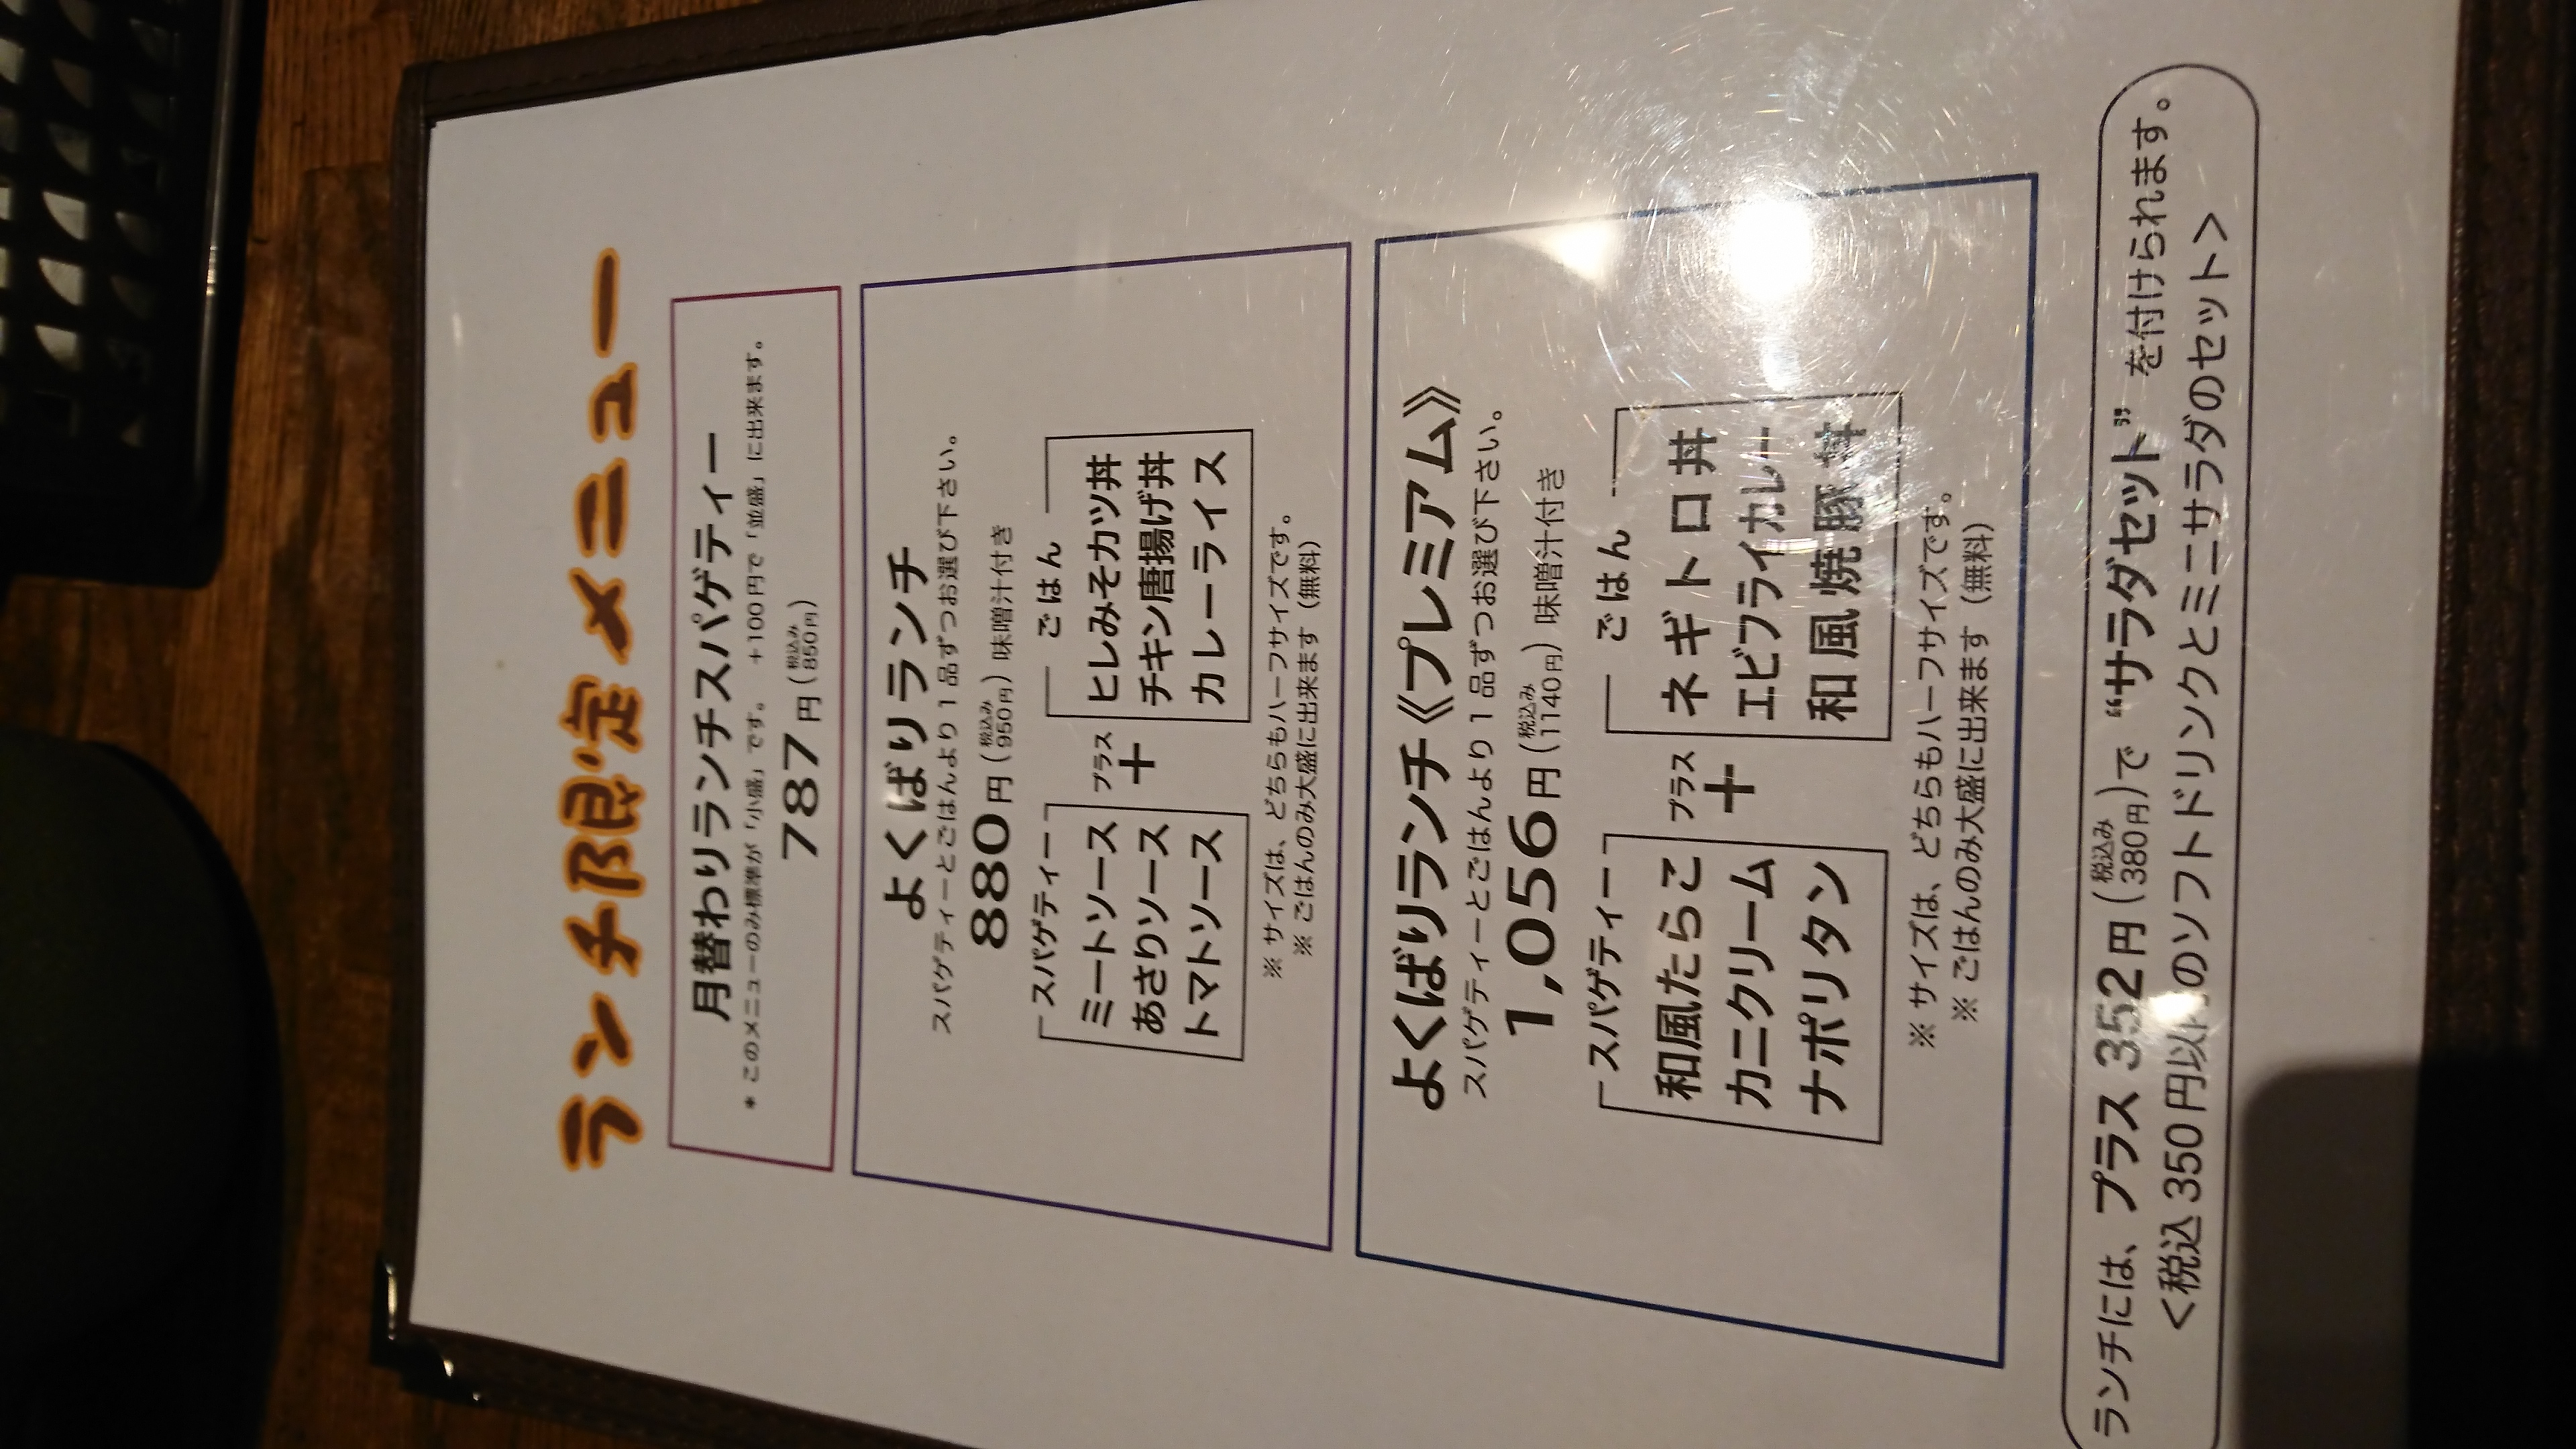 ランチ限定メニュー
月替わりランチスパゲティー
* このメニューのみ標準が「小盛」です。 +100円で「並盛」に出来ます。
787円(税込み850円)
よくばりランチ
スパゲティーとごはんより1品ずつお選び下さい。
880円(税込み950円)味噌汁付き
スパゲティー
ミートソース
あさりソース
トマトソース
プラス
+
ごはん
ヒレみそカツ丼
チキン唐揚げ丼
カレーライス
※サイズは、どちらもハーフサイズです。
※ごはんのみ大盛に出来ます(無料)
よくばりランチ《プレミアム》
スパゲティーとごはんより1品ずつお選び下さい。
1,056円(税込み1140円)味噌汁付き
スパゲティー
和風たらこ
カニクリーム
ナポリタン
プラス
+
ごはん
ネギトロ丼
エビフライカレー
和風焼豚丼
※サイズは、どちらもハーフサイズです。
※ごはんのみ大盛に出来ます(無料)
ランチには、プラス352円(税込み380円)で“サラダセット”を付けられます。
<税込350円以内のソフトドリンクとミニサラダのセット>